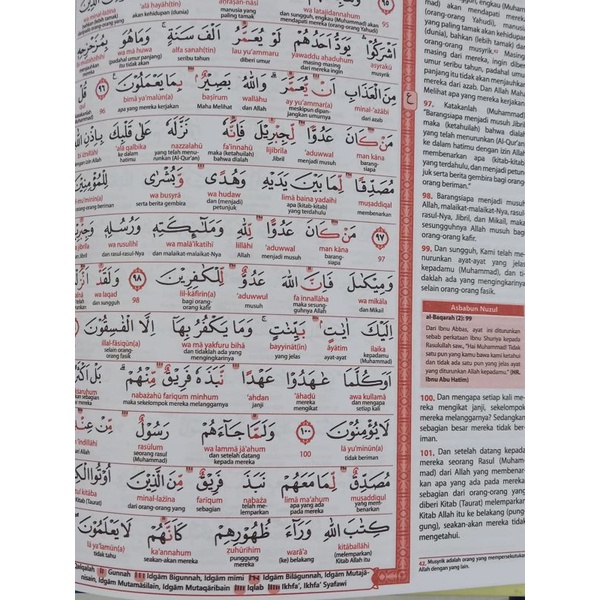 wa latajidannahum
أَشْرَكُوا يَوَدُّ أَحَدُهُمْ لَوْ يُعَمَّرُ أَلْفَ سَنَةٍ وَمَا هُوَ
asyrakū yawaddu aḥaduhum lau yu'ammaru alfa sanah(tin) wa mā huwa
musyrik masing-masing dari mereka ingin diberi umur seribu tahun (padahal umur panjang) itu tidak akan
مِنَ الْعَذَابِ أَنْ يُعَمَّرَ وَاللّٰهُ بَصِيرٌ بِمَا يَعْمَلُونَ ٩٦ قُلْ
minal-'azābi ay yu'ammar(a) wallāhu baṣīrum bimā ya'malūn(a) 96
dari azab meskipun dipanjangkan umurnya dan Allah Maha Melihat apa yang mereka kerjakan
مَنْ كَانَ عَدُوًّا لِجِبْرِيلَ فَإِنَّهُ نَزَّلَهُ عَلَى قَلْبِكَ بِإِذْنِ اللّٰهِ
man kāna 'aduwwal lijibrīla fa'innahū nazzalahū 'alā qalbika bi iżnillāhi
barangsiapa menjadi musuh Jibril maka (ketahuilah) bahwa dialah yang telah menurunkan (Al-Qur'an) ke dalam hatimu dengan izin Allah
مُصَدِّقًا لِمَا بَيْنَ يَدَيْهِ وَهُدًى وَبُشْرَى لِلْمُؤْمِنِينَ
muṣaddiqal limā baina yadaihi wa hudaw wa busyrā
membenarkan apa (kitab-kitab) yang terdahulu dan (menjadi) petunjuk serta berita gembira
مَنْ كَانَ عَدُوًّا لِلّٰهِ وَمَلَائِكَتِهِ وَرُسُلِهِ ٩٧
man kāna 'aduwwal lillāhi wa malā'ikatihī wa rusulihī 97
barangsiapa menjadi musuh Allah dan malaikat-malaikat-Nya dan rasul-rasul-Nya
وَمِيكَالَ فَإِنَّ اللّٰهَ عَدُوٌّ لِلْكَافِرِينَ ٩٨ وَلَقَدْ
wa mīkāla fa innallāha 'aduwwul lil-kāfirīn(a) 98 wa laqad
dan Mikail maka sesungguhnya Allah musuh bagi orang-orang kafir dan sungguh
إِلَيْكَ آيَاتٍ بَيِّنَاتٍ وَمَا يَكْفُرُ بِهَا إِلَّا الْفَاسِقُونَ
ilaika āyātim bayyināt(in) wa mā yakfuru bihā illal-fāsiqūn(a)
kepadamu (Muhammad) ayat-ayat yang jelas dan tidaklah ada yang mengingkarinya selain orang-orang fasik
أَوَكُلَّمَا عَاهَدُوا عَهْدًا نَبَذَهُ فَرِيقٌ مِنْهُمْ بَلْ
awa kullamā 'āhadū 'ahdan nabażahū farīqum minhum
dan mengapa setiap kali mereka mengikat janji maka sekelompok mereka melanggarnya
لَا يُؤْمِنُونَ ١٠٠ وَلَمَّا جَاءَهُمْ رَسُولٌ مِنْ عِنْدِ
lā yu'minūn(a) 100 wa lammā jā'ahum rasūlum
tidak beriman dan setelah datang kepada mereka seorang rasul (Muhammad)
مُصَدِّقٌ لِمَا مَعَهُمْ نَبَذَ فَرِيقٌ مِنَ الَّذِينَ أُوتُوا
muṣaddiqul limā ma'ahum nabaża farīqum minal-lażīna
yang membenarkan apa yang ada pada mereka melemparkan sebagian dari orang-orang yang diberi Kitab (Taurat)
كِتَابَ اللّٰهِ وَرَاءَ ظُهُورِهِمْ كَأَنَّهُمْ لَا يَعْلَمُونَ
kitāballāhi warā'a ẓuhūrihim ka'annahum lā ya'lamūn(a)
(melemparkan) Kitab Allah itu ke belakang punggung mereka seakan-akan mereka tidak tahu
Gunnah Idgām Bigunnah, Idgām mimi Idgām Bilāgunnah, Idgām Mutajā-
nisain, Idgām Mutamāsilain, Idgām Mutaqāribain Iqlab Ikhfa', Ikhfa' Syafawi
97. Katakanlah (Muhammad)
"Barangsiapa menjadi musuh Jibril
maka (ketahuilah) bahwa dialah
yang telah menurunkan (Al-Qur'an)
ke dalam hatimu dengan izin Allah
membenarkan apa (kitab-kitab)
yang terdahulu, dan menjadi petun-
juk serta berita gembira bagi orang-
orang beriman."
98. Barangsiapa menjadi musuh
Allah, malaikat-malaikat-Nya, rasul-
rasul-Nya, Jibril, dan Mikail, maka
sesungguhnya Allah musuh bagi
orang-orang kafir.
99. Dan sungguh, Kami telah me-
nurunkan ayat-ayat yang jelas
kepadamu (Muhammad), dan ti-
daklah ada yang mengingkarinya
selain orang-orang fasik.
Asbabun Nuzul
al-Baqarah (2): 99
Dari Ibnu Abbas, ayat ini diturunkan
sebab perkataan Ibnu Shuriya kepada
Rasulullah saw, "Hai Muhammad! Tidak
satu pun yang kamu bawa kami ketahui
dan tidak ada satu pun ayat yang jelas
yang diturunkan Allah kepadamu." (HR.
Ibnu Abu Hatim)
100. Dan mengapa setiap kali me-
reka mengikat janji, sekelompok
mereka melanggarnya? Sedangkan
sebagian besar mereka tidak ber-
iman.
101. Dan setelah datang kepada
mereka seorang Rasul (Muham-
mad) dari Allah yang membenar-
kan apa yang ada pada mereka
sebagian dari orang-orang yang
diberi Kitab (Taurat) melemparkan
Kitab Allah itu ke belakang (pung-
gung), seakan-akan mereka tidak
mengetahui.
42. Musyrik adalah orang yang mempersekutukan
Allah dengan yang lain.